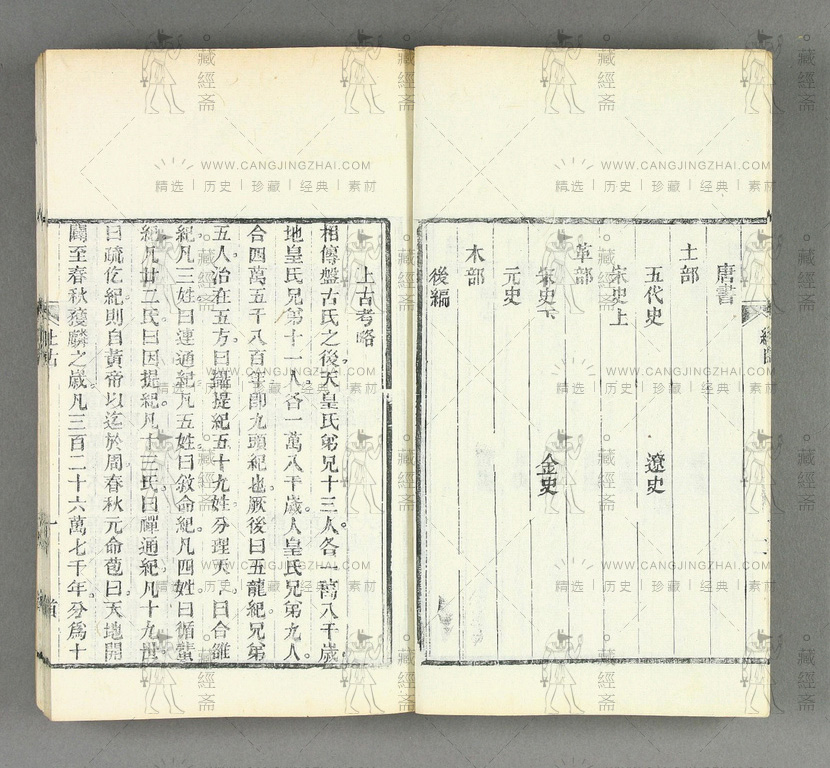 唐書
土部
五代史 遼史
宋史上
革部
宋史下 金史
元史
木部
後編
二
上古考略
相傳盤古氏之後天皇氏弟兄十三人各一萬八千歲
地皇氏兄弟十一人各一萬八千歲人皇氏兄弟九人
合四萬五千八百年卽九頭紀也厥後曰五龍紀兄弟
五人治在五方曰攝提紀五十九姓分理天下曰合雒
紀凡三姓曰連通紀凡五姓曰敘命紀凡四姓曰循蜚
紀凡廿二氏曰因提紀凡十三氏曰禪通紀凡十九世
曰疏仡紀則自黃帝以迄於周春秋元命苞曰天地開
闢至春秋獲麟之歲凡三百二十六萬七千年分爲十
上古
一
藏經斋
WWW.CANGJINGZHAI.COM
精选 | 历史 | 珍藏 | 经典 | 素材